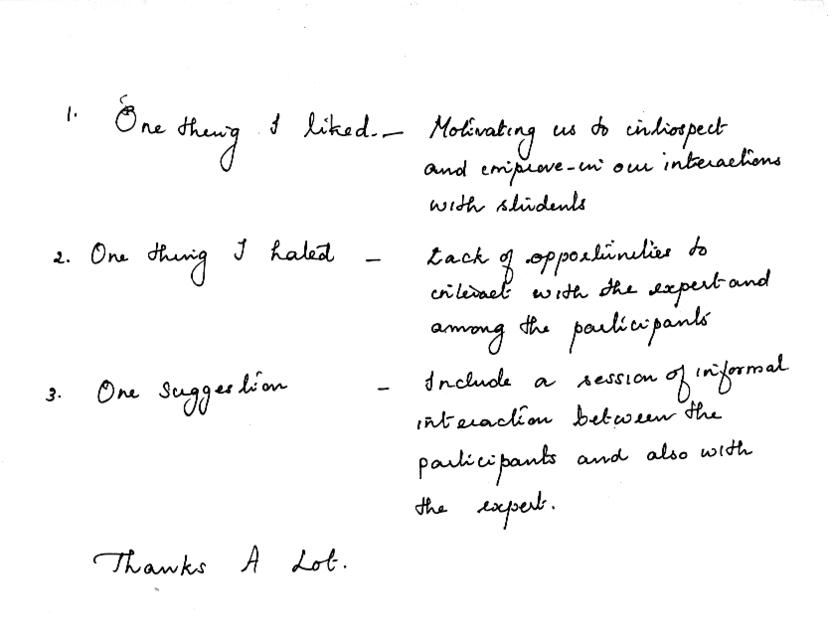 1. One thing I liked. - Motivating us to introspect
and improve in our interactions
with students
2. One thing I hated - Lack of opportunities to
interact with the expert and
among the participants
3. One suggestion - Include a session of informal
interaction between the
participants and also with
the expert.
Thanks A Lot.